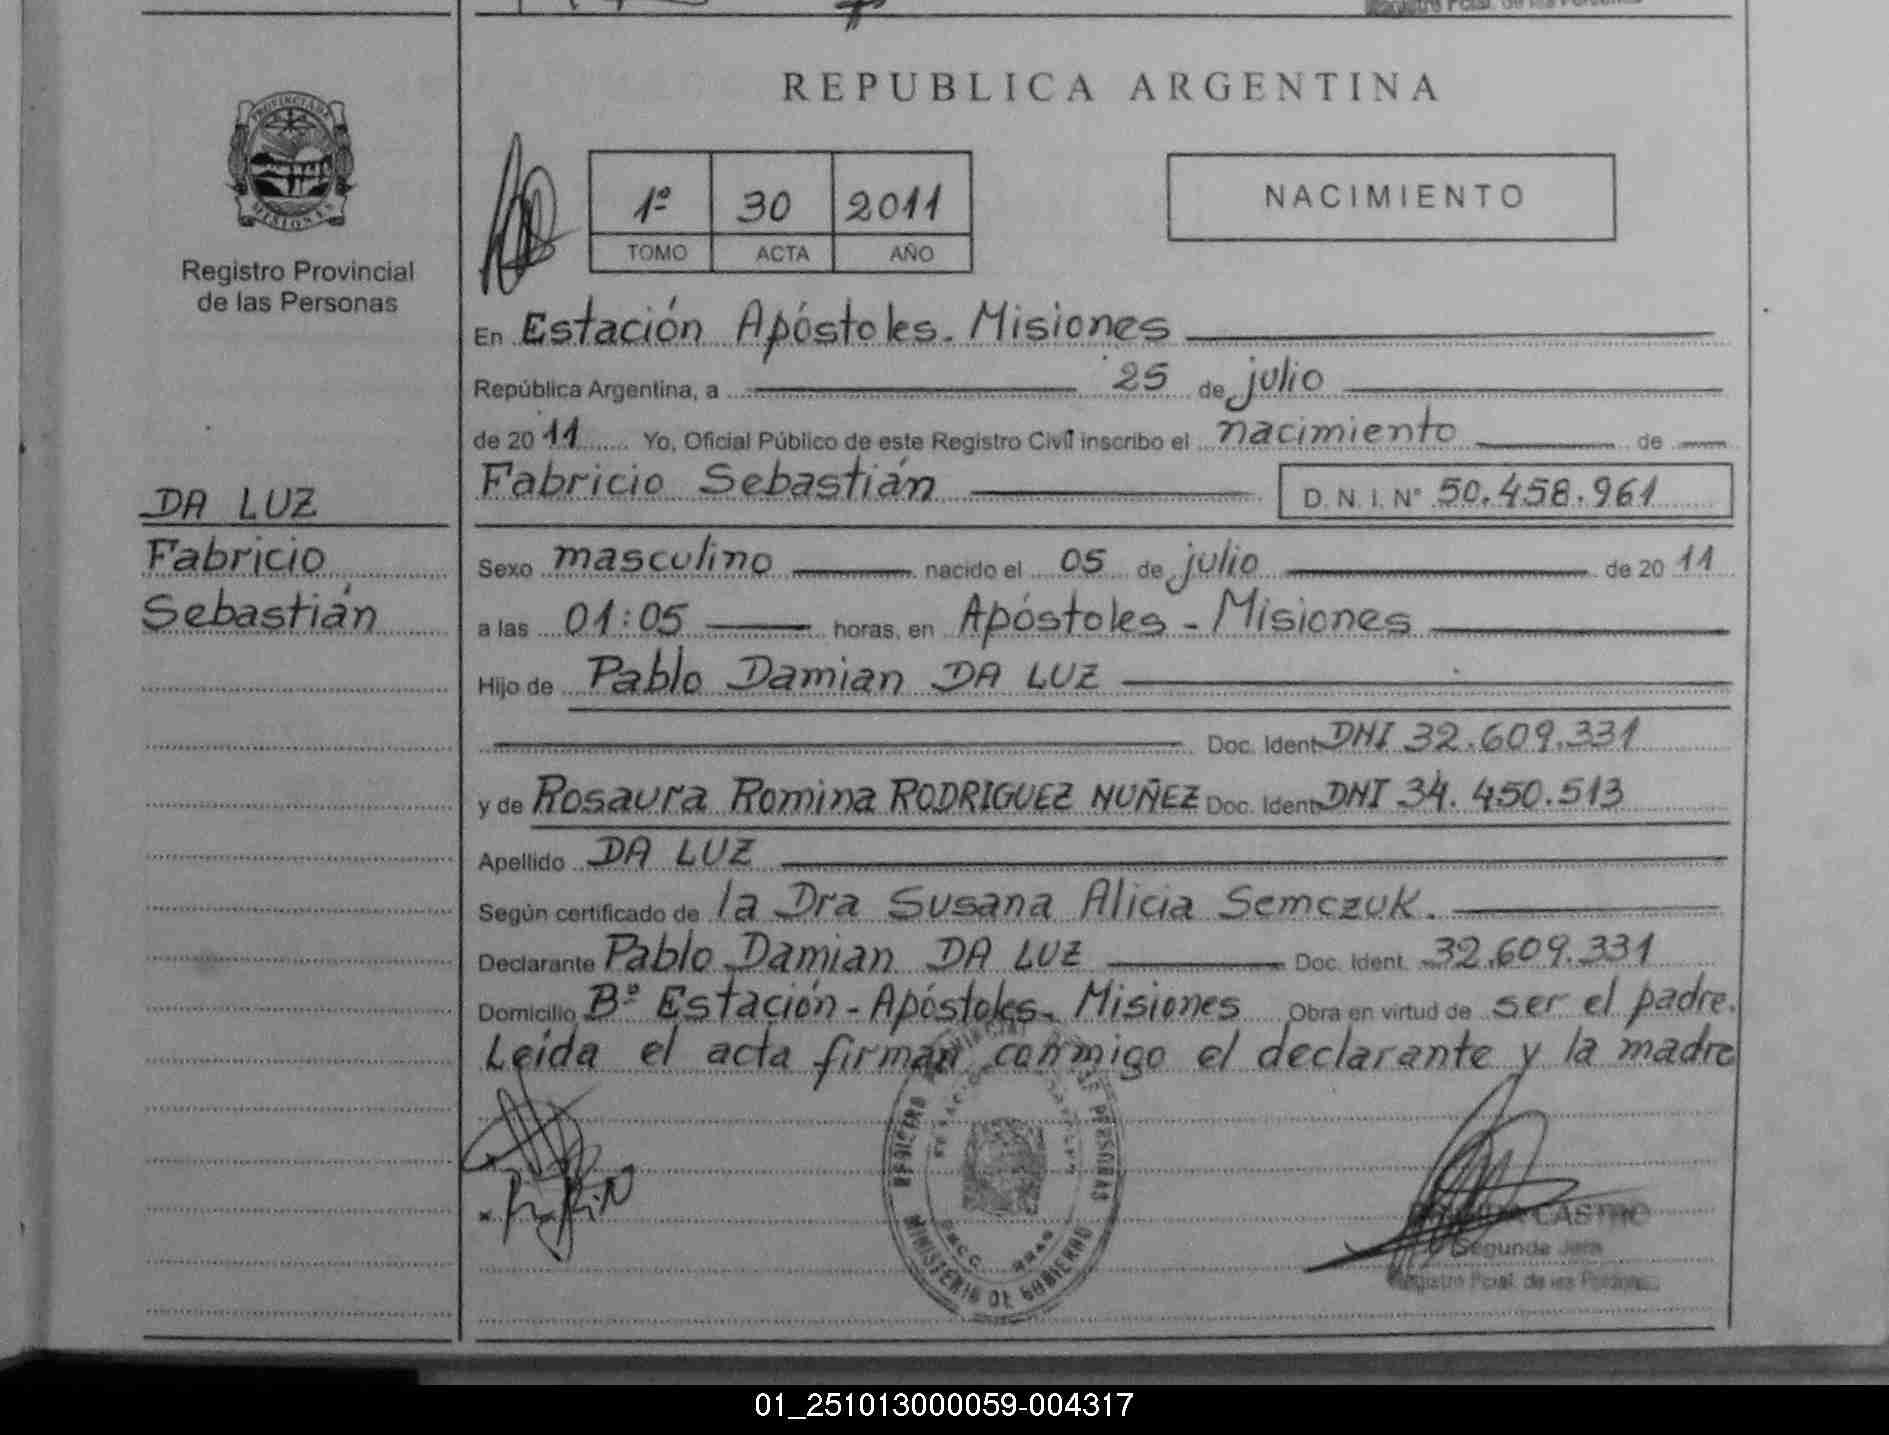 PROVINCIA DE
MISIONES
Registro Provincial
de las Personas
DA LUZ
Fabricio
Sebastián
Registro Pcial. de las Personas
REPUBLICA ARGENTINA
1º 30 2011
TOMO ACTA AÑO
NACIMIENTO
En Estación Apóstoles. Misiones
República Argentina, a 25 de julio
de 2011 Yo, Oficial Público de este Registro Civil inscribo el nacimiento de
Fabricio Sebastián D. N. I. Nº 50.458.961
Sexo masculino nacido el 05 de julio de 2011
a las 01:05 horas, en Apóstoles - Misiones
Hijo de Pablo Damian DA LUZ
Doc. Ident. DNI 32.609.331
y de Rosaura Romina RODRIGUEZ NUÑEZ Doc. Ident. DNI 34.450.513
Apellido DA LUZ
Según certificado de la Dra Susana Alicia Semczuk.
Declarante Pablo Damian DA LUZ Doc. Ident. 32.609.331
Domicilio Bº Estación - Apóstoles. Misiones Obra en virtud de ser el padre.
Leída el acta firman conmigo el declarante y la madre
REGISTRO PERSONAS
MINISTERIO DE GOBIERNO
CASTRO
Segunda
Registro Pcial. de las
01_251013000059-004317